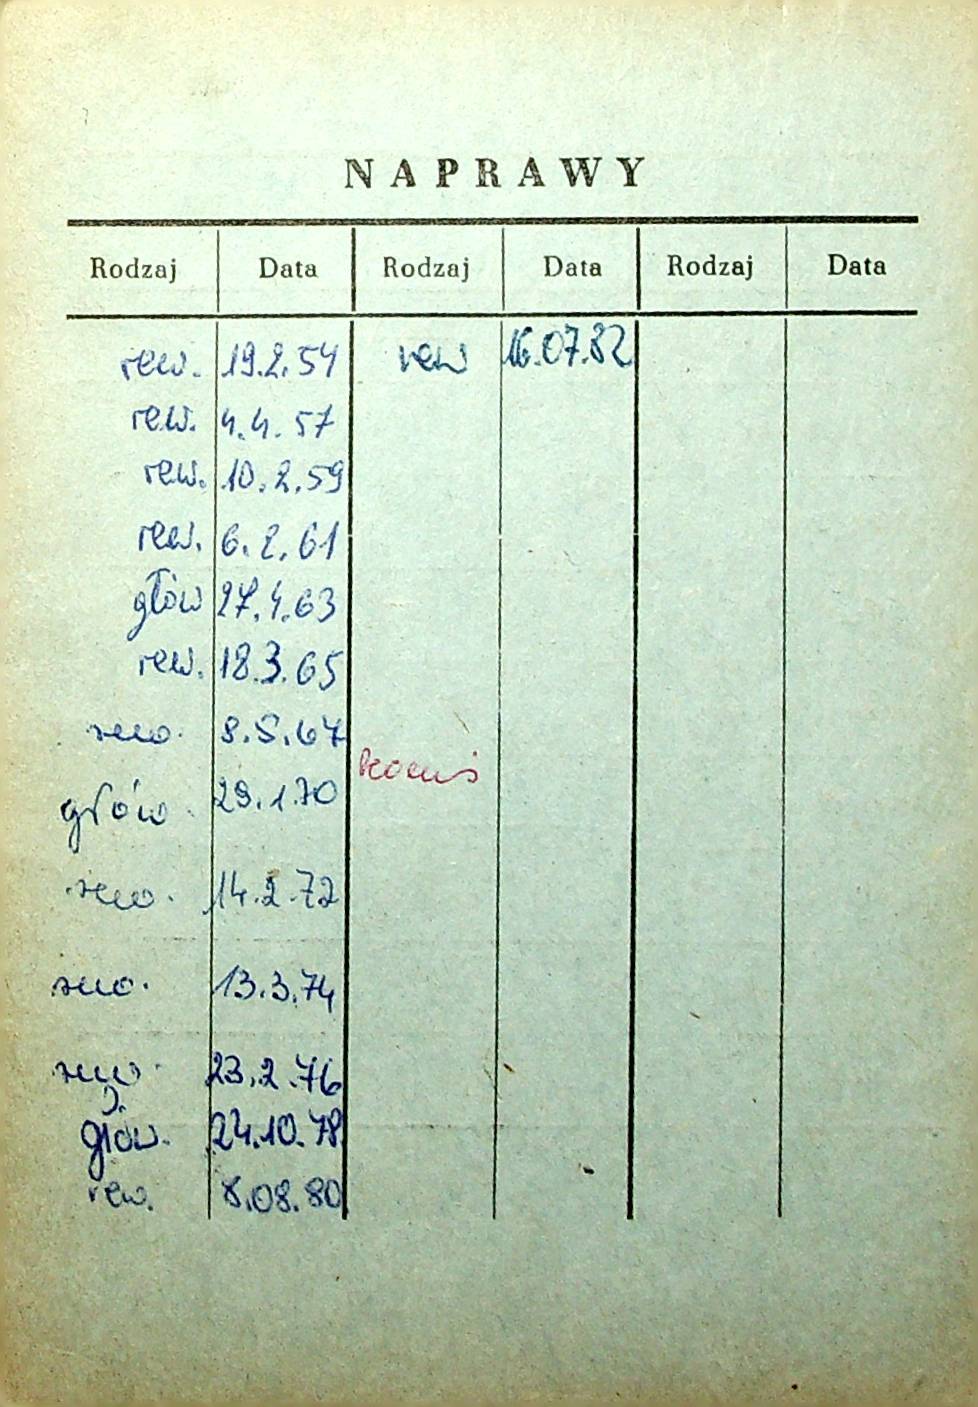 NAPRAWY
Rodzaj Data Rodzaj Data Rodzaj Data
rew. 19.2.54 rew 16.07.82
rew. 4.4.57
rew. 10.2.59
rew. 6.2.61
głów 27.4.63
rew. 18.3.65
rew. 8.5.67
głów. 29.1.70
rew. 14.2.72
rew. 13.3.74
rew. 23.2.76
głów. 24.10.78
rew. 8.08.80